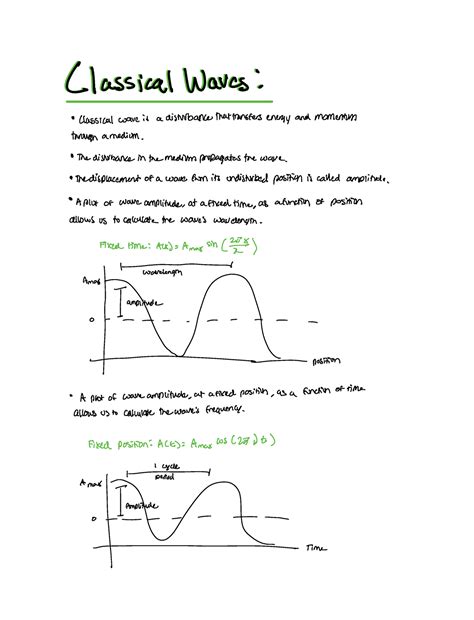 Classical Waves:
• Classical wave is a disturbance that transfers energy and momentum
through a medium.
• The disturbance in the medium propagates the wave.
• The displacement of a wave from its undisturbed position is called amplitude.
• A plot of wave amplitude, at a fixed time, as a function of position
allows us to calculate the wave's wavelength.
Fixed time: A(x) = Amax sin (2πx/λ)
wavelength
Amax
amplitude
0
position
• A plot of wave amplitude, at a fixed position, as a function of time
allows us to calculate the wave's frequency.
Fixed position: A(t) = Amax cos (2πνt)
1 cycle
period
Amax
Amplitude
0
Time